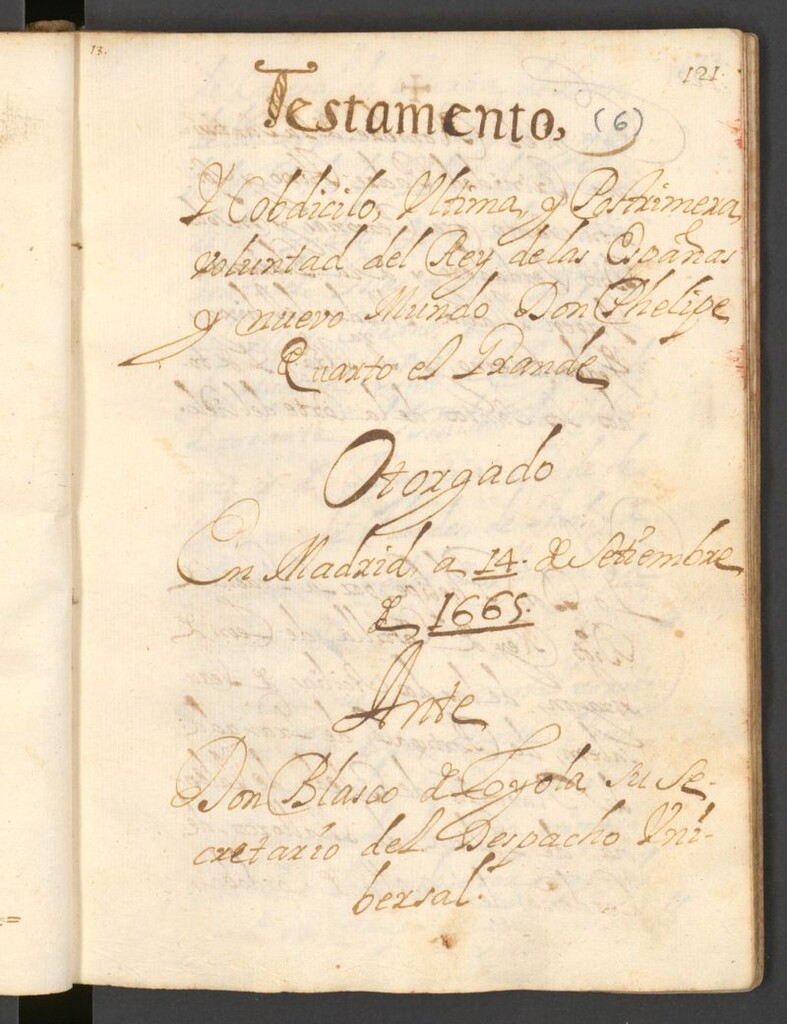 13.
121.
Testamento, (6)
Y Cobdicilo, Vltima, y Postrimera
voluntad del Rey de las Españas
y nuevo Mundo Don Phelipe
Quarto el Grande
Otorgado
En Madrid a 14. de Setiembre
de 1665.
Ante
Don Blasco de Loyola su Se-
cretario del Despacho Vni-
bersal.